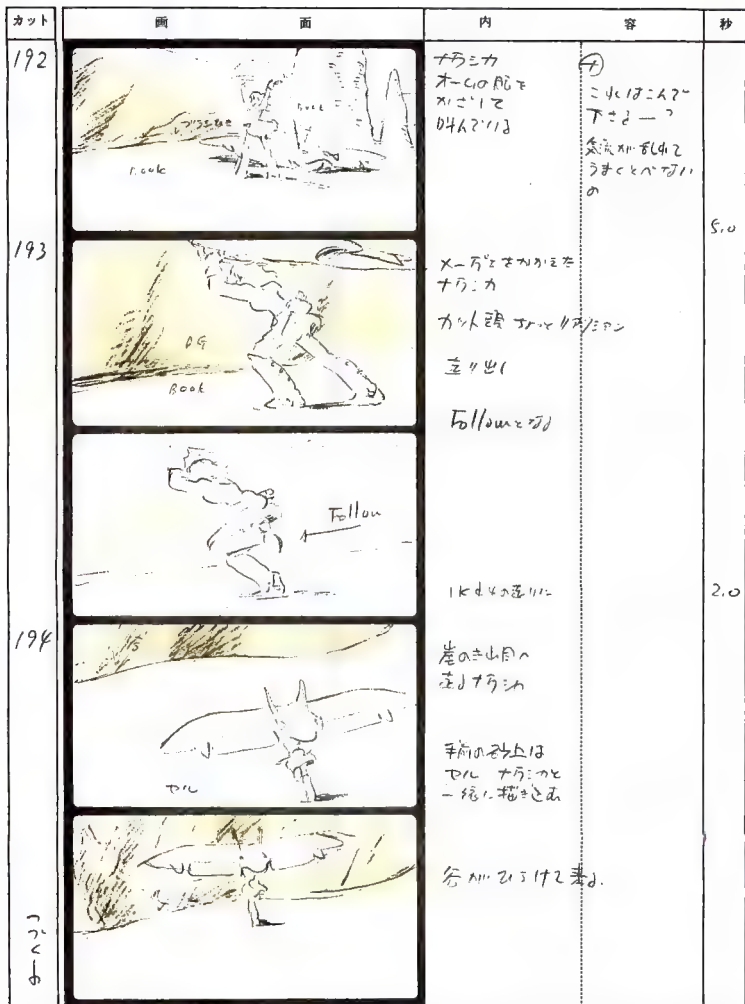 カット
画 面
内 容
秒
192
ブラシひき
Book
Book
ナウシカ
オームの殻を
かざして
叫んでいる
ナ
これはこんで
下さる―?
気流が乱れて
うまくとべない
の
5.0
193
BG
Book
メーヴェをかかえた
ナウシカ
カット頭 ちょっとリアクション
走り出し
Followとなる
Follow
走りに
2.0
194
セル
走るナウシカ
手前の砂上は
セル ナウシカと
一緒に描き込む
谷がひらけて来る.
つづく